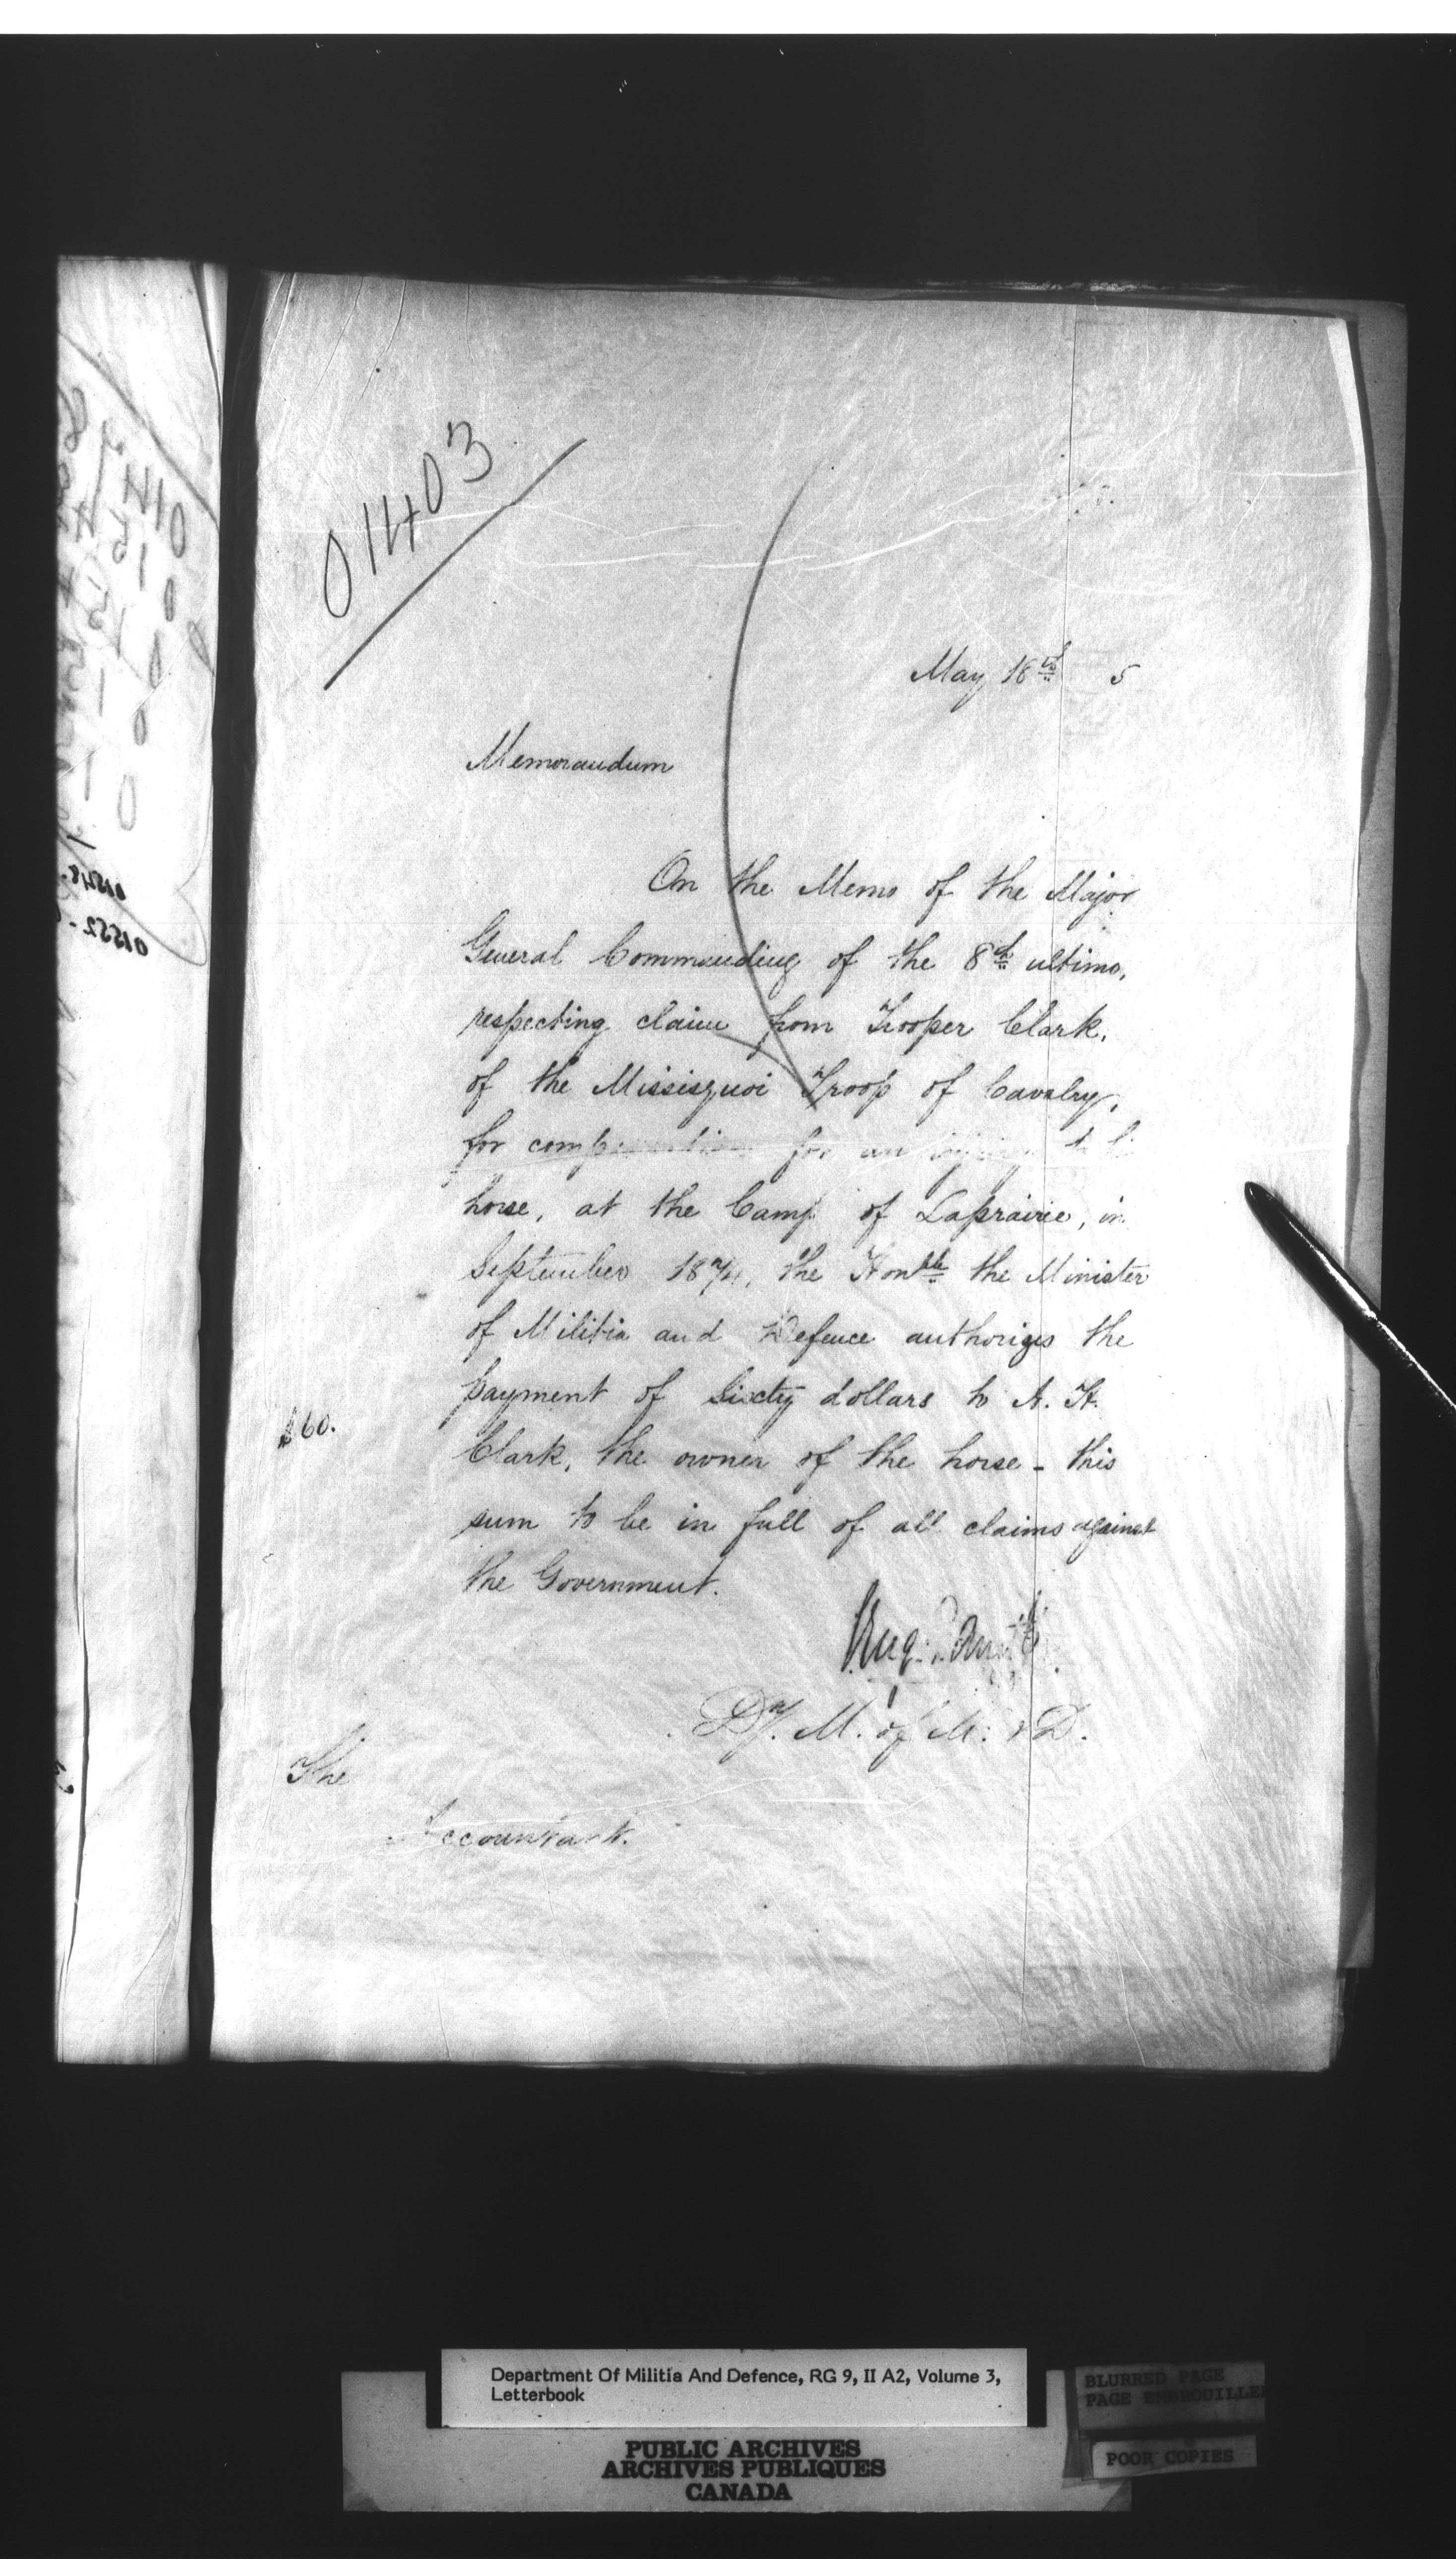 01403
May 18th 5
Memorandum
On the Memo of the Major
General Commanding of the 8th ultimo,
respecting claim from Trooper Clark,
of the Missisquoi Troop of Cavalry,
for compensation for an injury to
horse, at the Camp of Laprairie, in
September 1874, the Honble the Minister
of Militia and Defence authorizes the
payment of Sixty dollars to A. H.
$60.
Clark, the owner of the horse - this
sum to be in full of all claims against
the Government.
Dy. M. of M. & D.
The
Accountant.
01548.
01552.
Department Of Militia And Defence, RG 9, II A2, Volume 3,
Letterbook
PUBLIC ARCHIVES
ARCHIVES PUBLIQUES
CANADA
BLURRED PAGE
PAGE EMBROUILLE
POOR COPIES